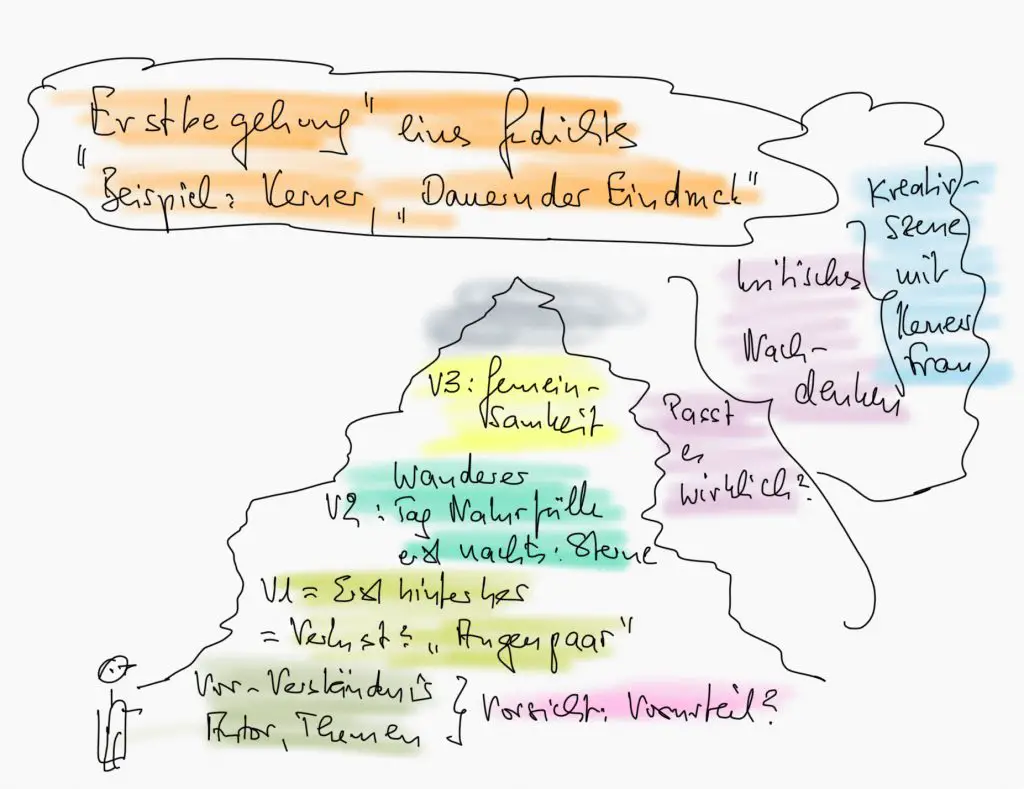 "Erstbegehung" eines Gedichts
Beispiel: Kerner, "Dauernder Eindruck"
Kreativ-
szene
mit
Kerners
Frau
kritisches
Nach-
denken
Passt
es
wirklich?
V3: Gemein-
samkeit
Wanderer
V2: Tag Naturfülle
erst nachts: Sterne
V1 = Erst hinterher
= Verlust? "Augenpaar"
Vor-Verständnis
Autor, Themen
Vorsicht: Vorurteil?